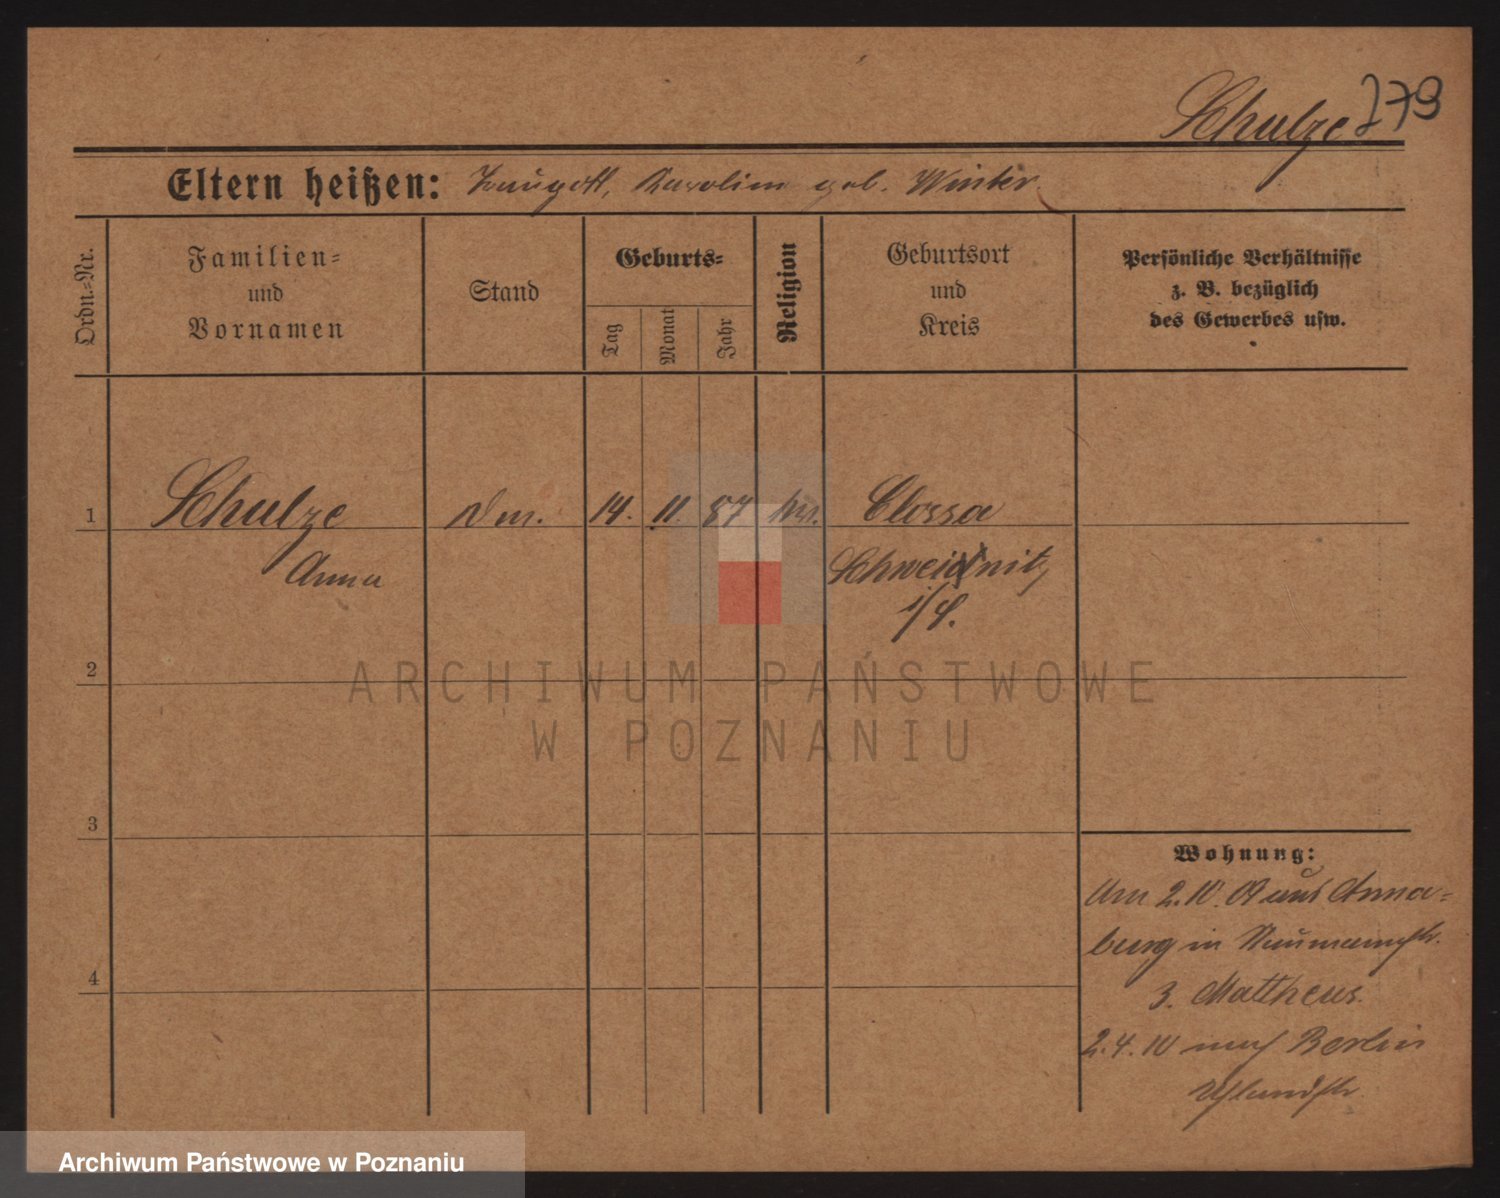 Schulze 279
Eltern heißen: Traugott, Karoline geb. Winter
Ordn.-Nr.
Familien-
und
Vornamen
Stand
Geburts-
Tag
Monat
Jahr
Religion
Geburtsort
und
Kreis
Persönliche Verhältnisse
z. B. bezüglich
des Gewerbes usw.
1 Schulze 14. 11. 87 Clossa
Anna Schweinitz
2
ARCHIWUM PAŃSTWOWE
W POZNANIU
3
Wohnung:
Am 2.10. 09 aus Anna-
burg in Naumannstr.
4
3. Mattheus.
2.4.10 nach Berlin
Uhlandstr.
Archiwum Państwowe w Poznaniu